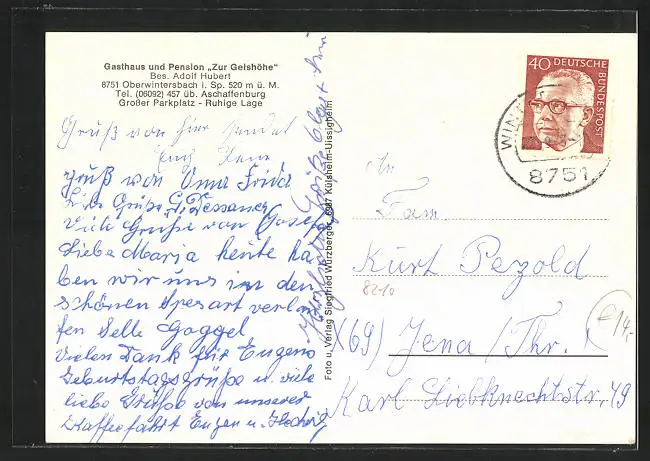 Gasthaus und Pension „Zur Geishöhe"
Bes. Adolf Hubert
8751 Oberwintersbach i. Sp. 520 m ü. M.
Tel. (06092) 457 üb. Aschaffenburg
Großer Parkplatz - Ruhige Lage
Gruß von hier sendet
Euch
gruß von Oma Frida
Liebe Grüße G. Dessauer
Viele Grüße von Josef
Liebe Maria heute ha
ben wir uns in den
schönen Spesart verlau
fen Selle Goggel
Vielen Dank für Eugens
Geburtstagsgrüße u. viele
liebe Grüße von unserer
Kaffeefahrt Eugen u. Hedwig
Foto u. Verlag Siegfried Würzberger, 6987 Külsheim-Uissigheim
40 DEUTSCHE
BUNDESPOST
8751
An
Fam
Kurt Pezold
8210
X(69) Jena / Thr.
Karl Liebknechtstr. 49
€14,-